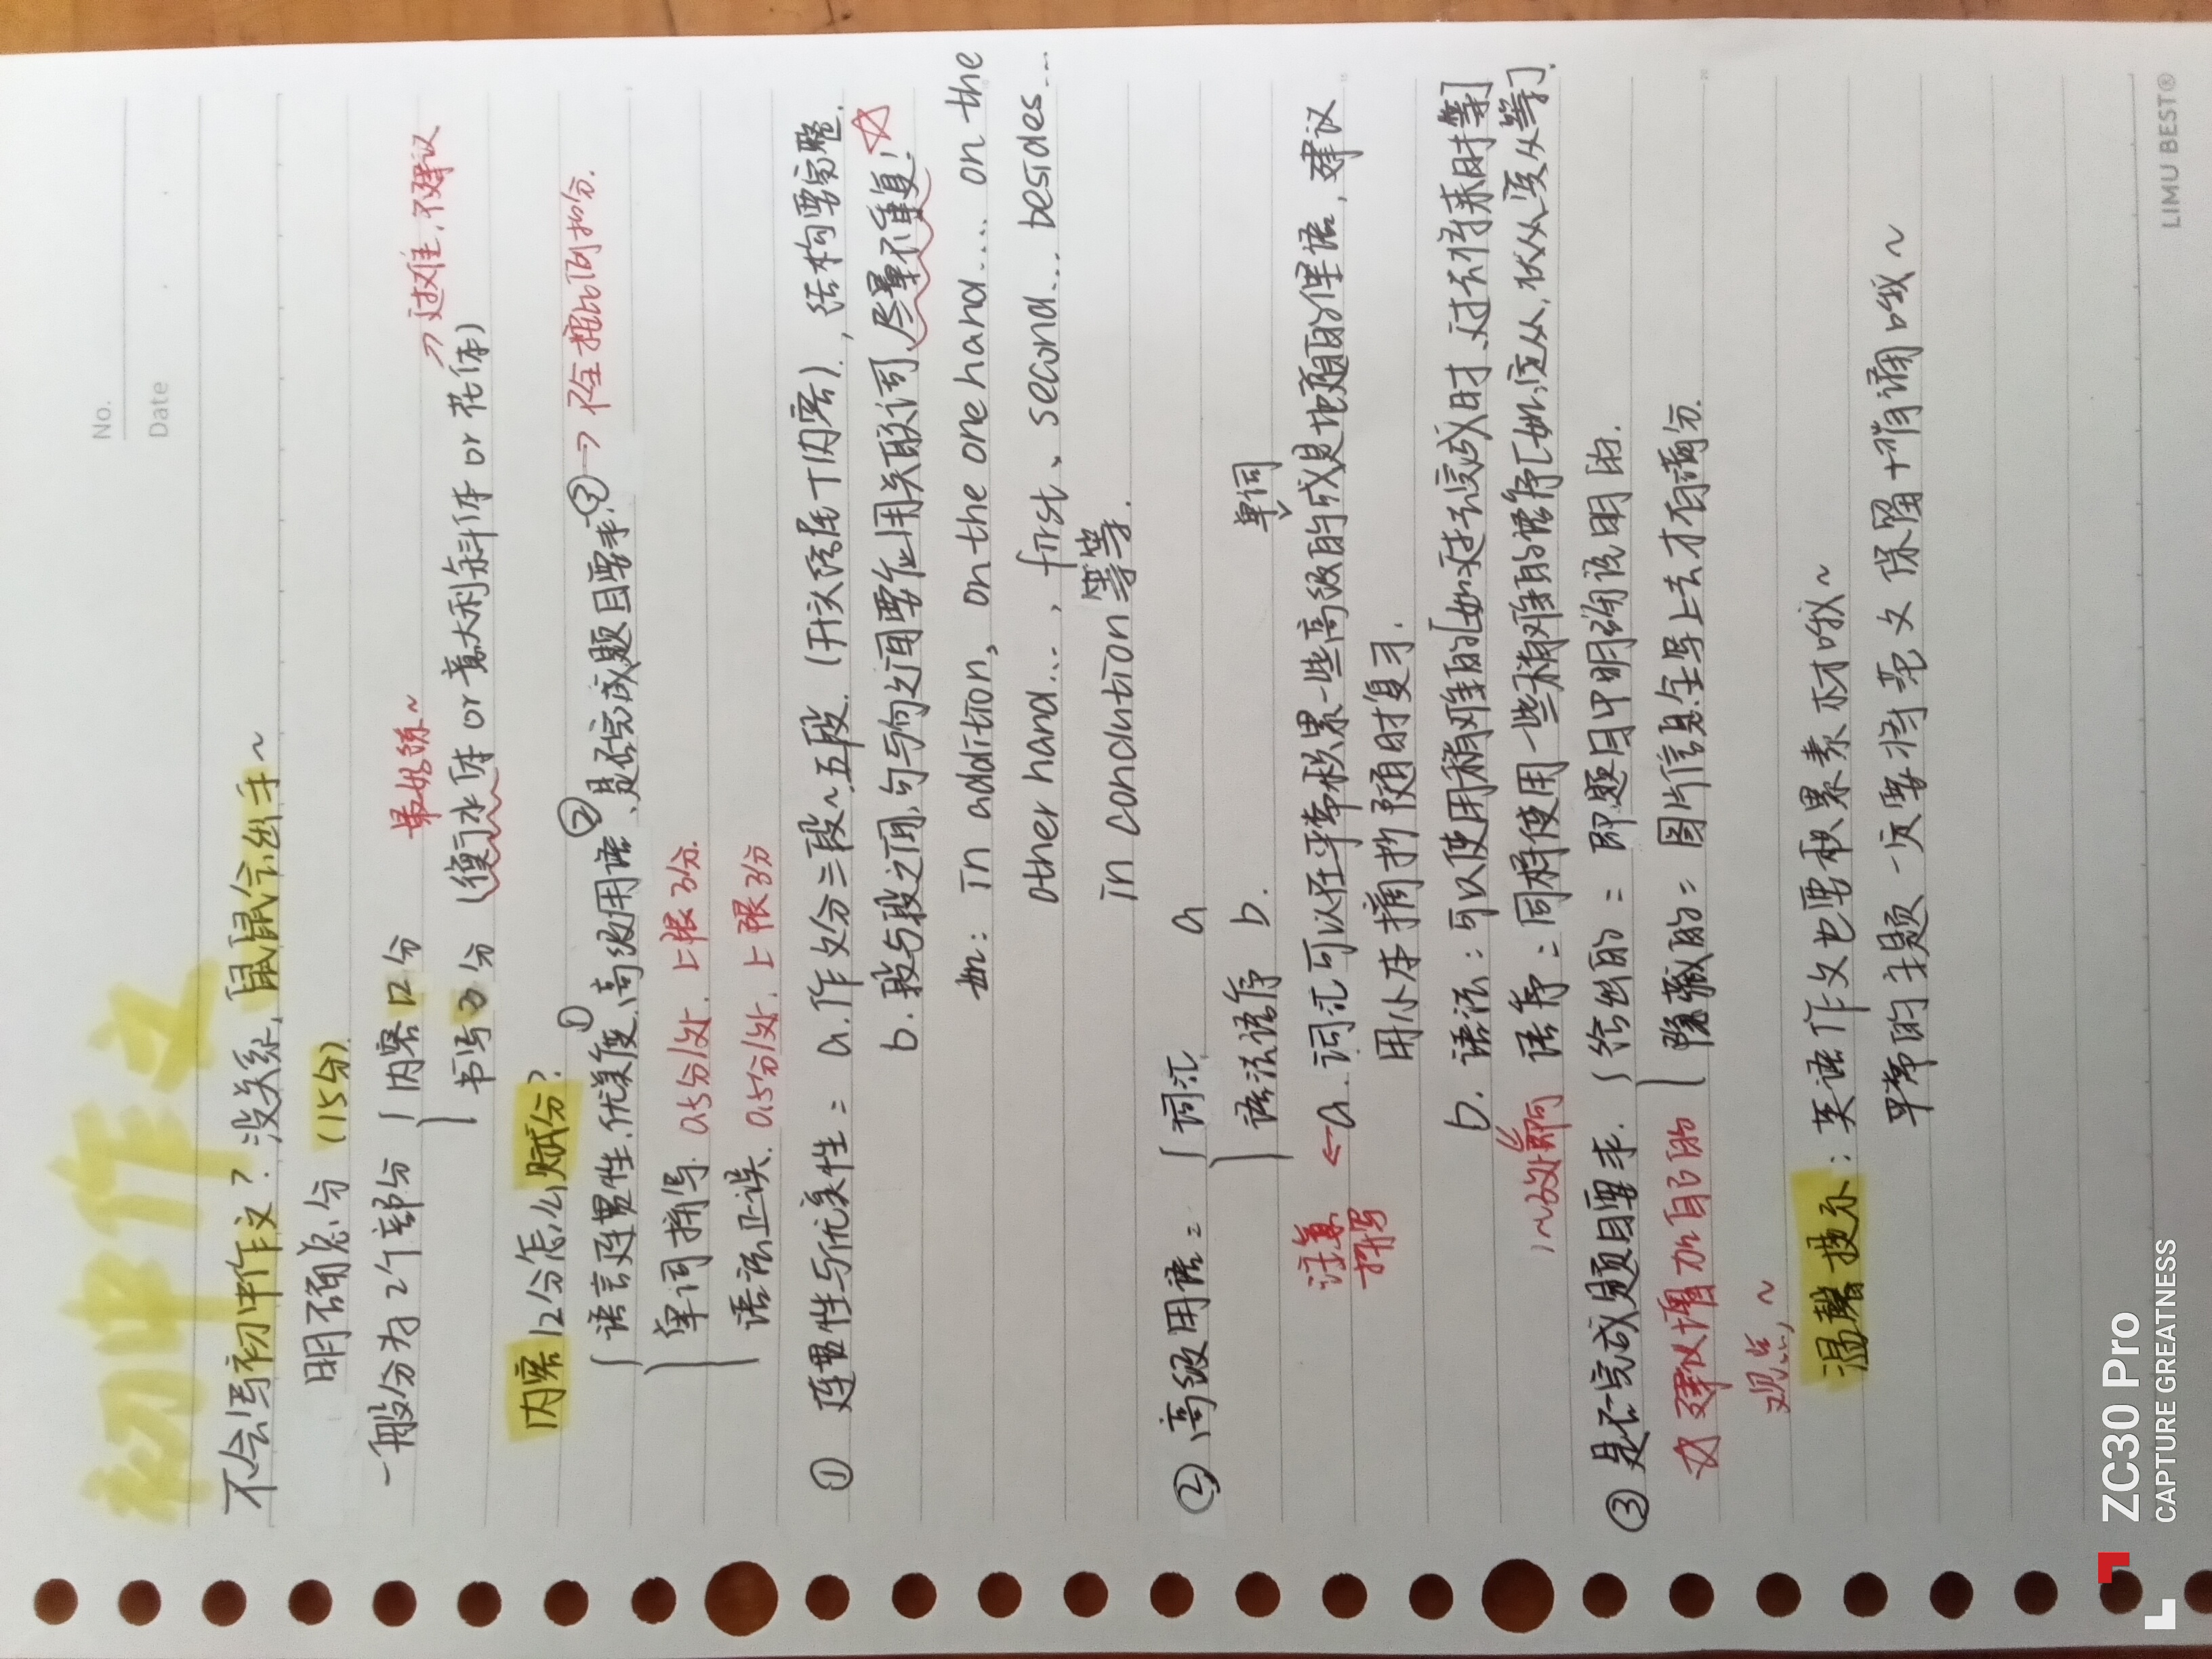 No.
Date
初中作文
不会写初中作文？没关系，鼠鼠会出手~
明确总分（15分）
一般分为2个部分 内容12分 最好练~
书写3分（衡水体or意大利斜体or花体）→过难，不建议
内容12分怎么赋分？
语言连贯性、优美度①、高级用语②、是否完成题目要求③→ 按比例扣分.
单词拼写. 0.5分/处. 上限3分.
语法正误. 0.5分/处. 上限3分
① 连贯性与优美性： a. 作文分三段~五段.（开头结尾+内容）, 结构要完整.
b. 段与段之间、句与句之间要使用关联词、尽量不重复！☆
如： in addition, on the one hand.... on the
other hand..., first、second... besides...
in conclution等等.
② 高级用语： 词汇 a
语法语序 b. 单词
注意拼写 ← a. 词汇可以在平常积累一些高级的或是地道的俚语, 建议
用小本摘抄随时复习.
b. 语法：可以使用稍难的[如现在完成时、过去将来时等]
1~2处即可 语序：同样使用一些稍难的语序[如:定从, 状从,宾从等].
③ 是否完成题目要求. 给出的：即题目中明确说明的.
☆ 建议增加自己的 隐藏的：图片信息全写上去才有满分.
观点,~
温馨提示：英语作文也要积累素材哦~
平常的主题一定要将范文保留+背诵哦~
LIMU BEST®
ZC30 Pro
CAPTURE GREATNESS